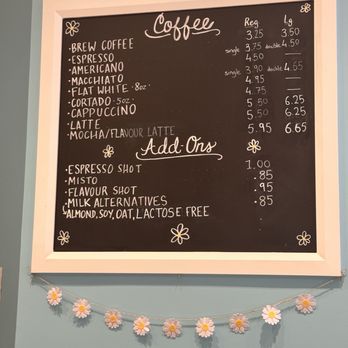 Coffee Reg Lg
·BREW COFFEE 3.25 3.50
·ESPRESSO single 3.75 double 4.50
·AMERICANO
·MACCHIATO single 3.90 double 4.65
·FLAT WHITE ·8oz· 4.95 —
·CORTADO ·5oz· 4.75 —
·CAPPUCCINO 5.50 6.25
·LATTE 5.50 6.25
·MOCHA/FLAVOUR LATTE 5.95 6.65
Add Ons
·ESPRESSO SHOT 1.00
·MISTO .85
·FLAVOUR SHOT .95
·MILK ALTERNATIVES .85
ALMOND, SOY, OAT, LACTOSE FREE